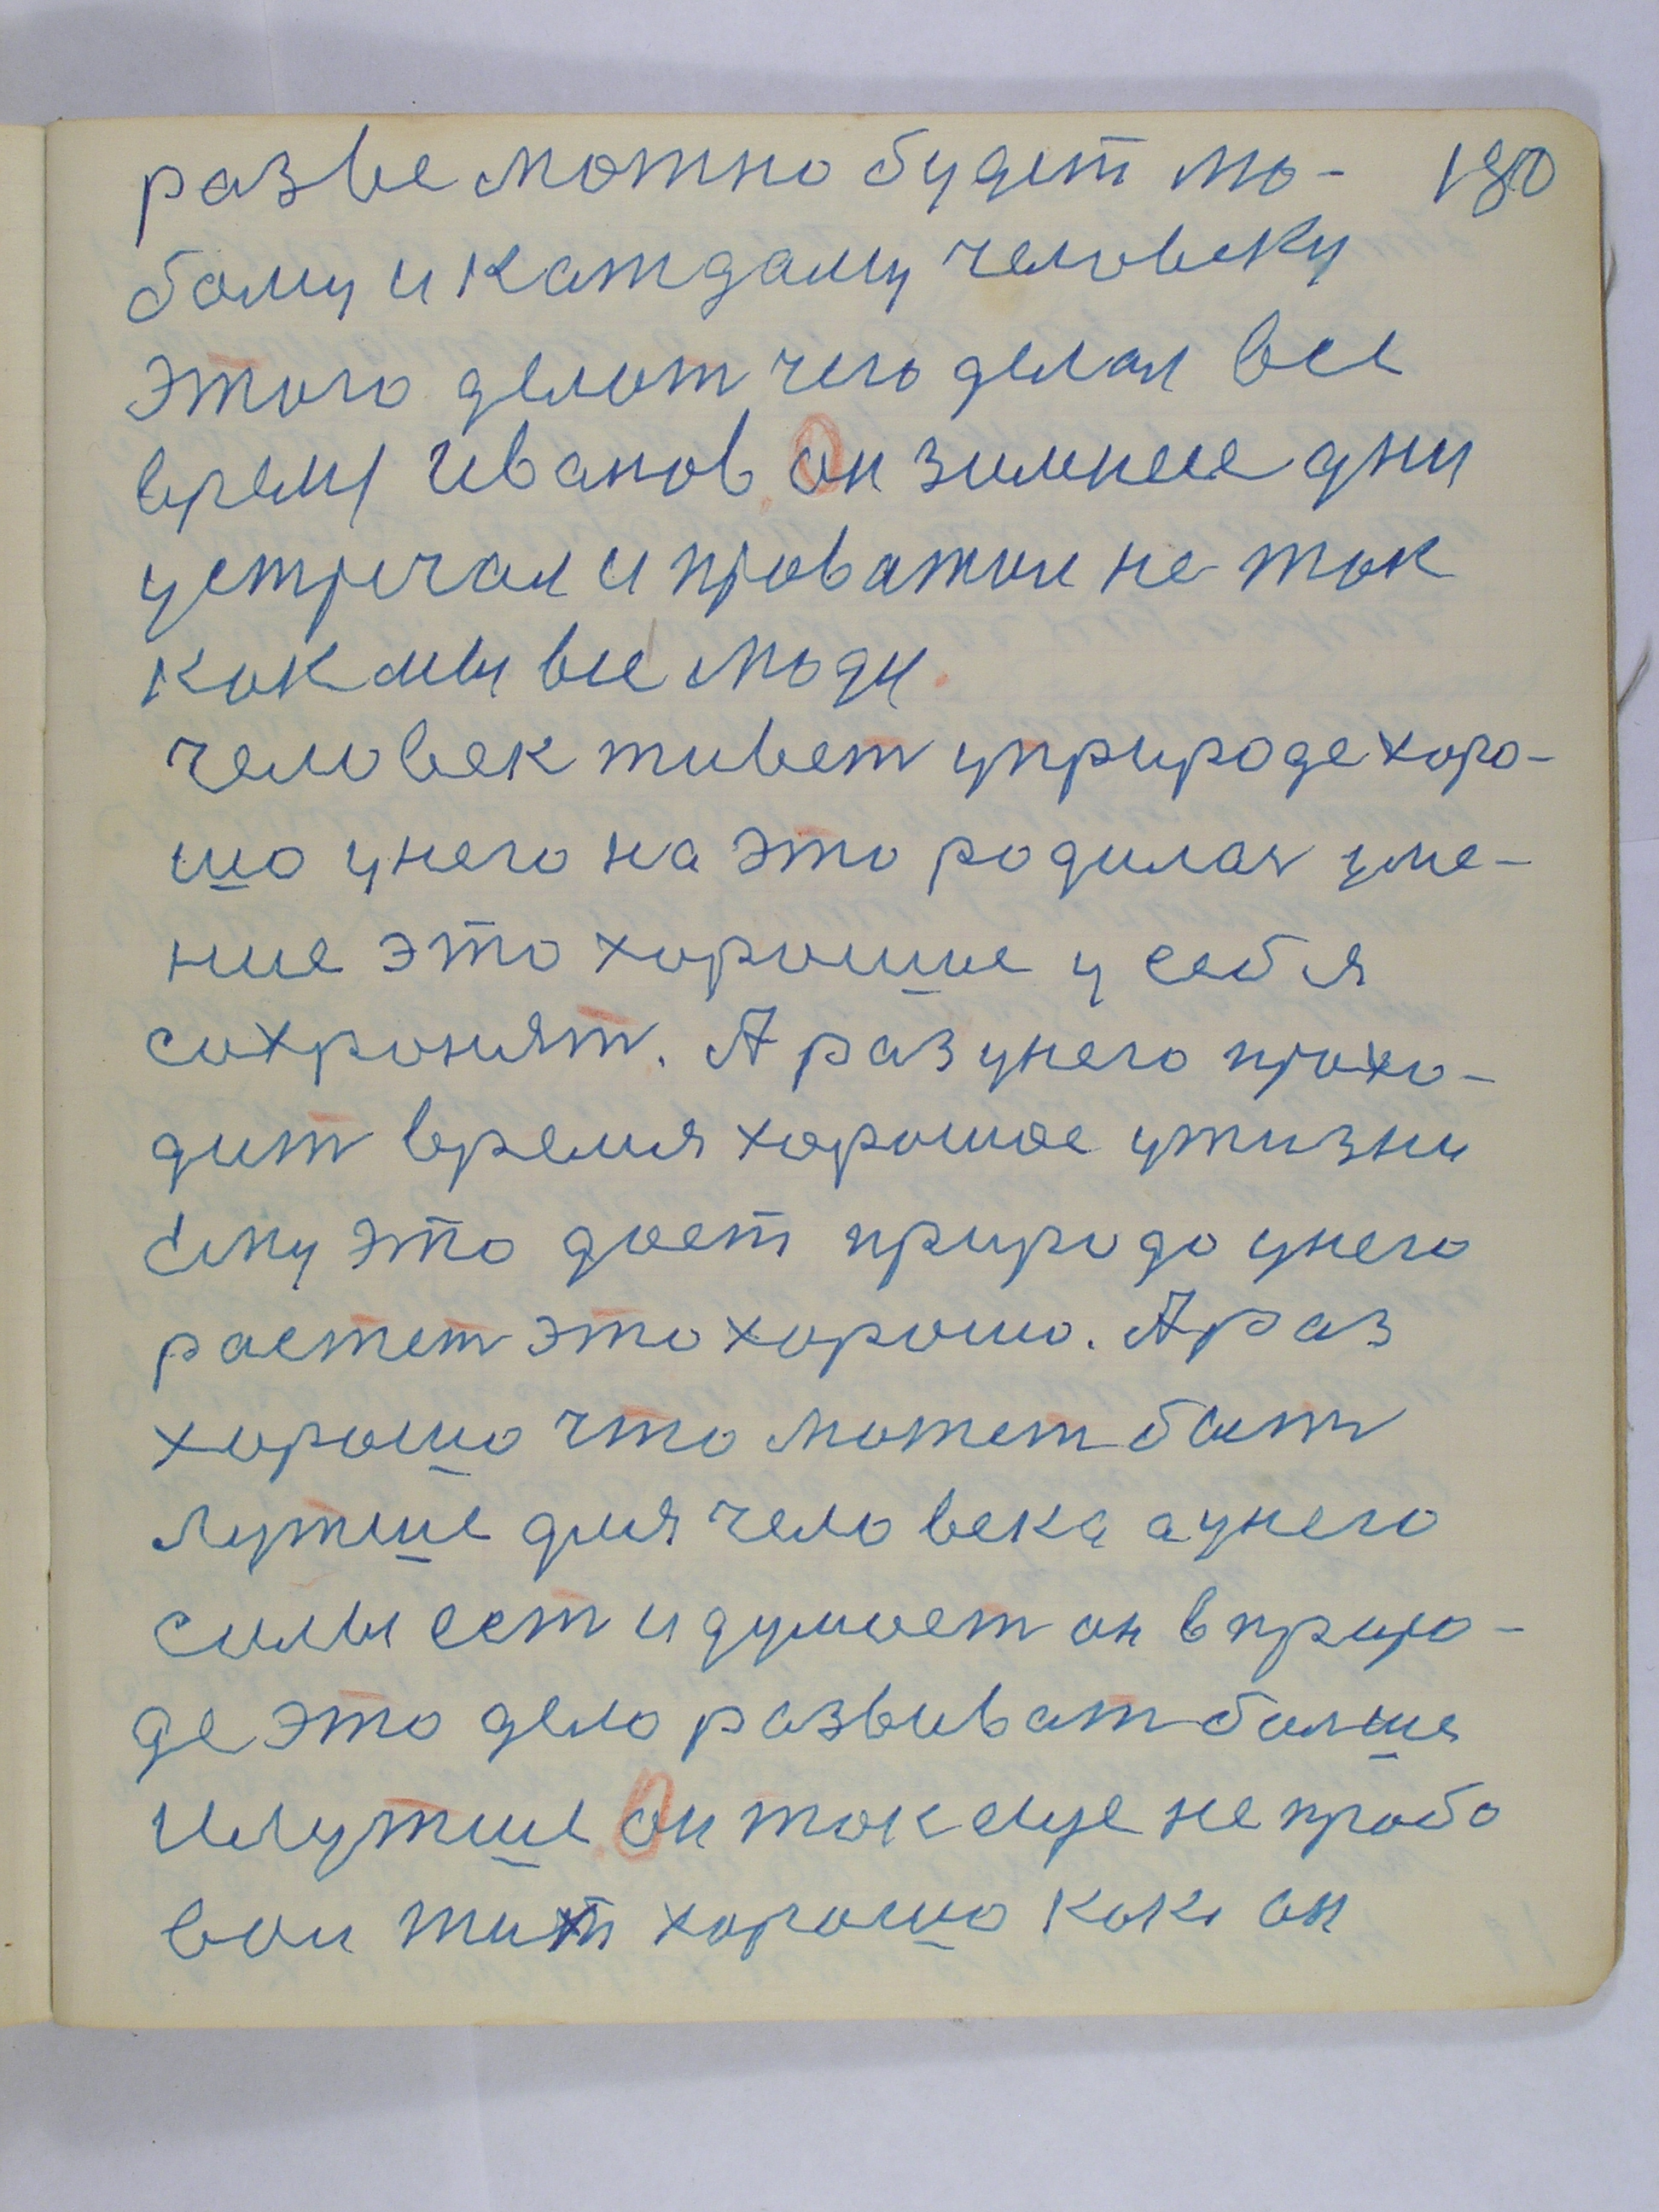 разве можно будет лю- 180
бому и каждаму человеку
этого делот чего делал все
время Иванов. Он зимнее дни
устречал и проважал не так
как мы все люди.
человек живет уприроде хоро-
шо унего на это родилас уме-
ние это хорошое у себя
сохронят. А раз унего прохо-
дит время хорошое ужизни
ему это дает природа унего
растет это хорошо. А раз
хорошо что можем быт
лутше для человека а унего
силы ест и думает он в приро-
де это дело развиват болше
илутше. Он так еще не пробо
вал жит хорошо как он